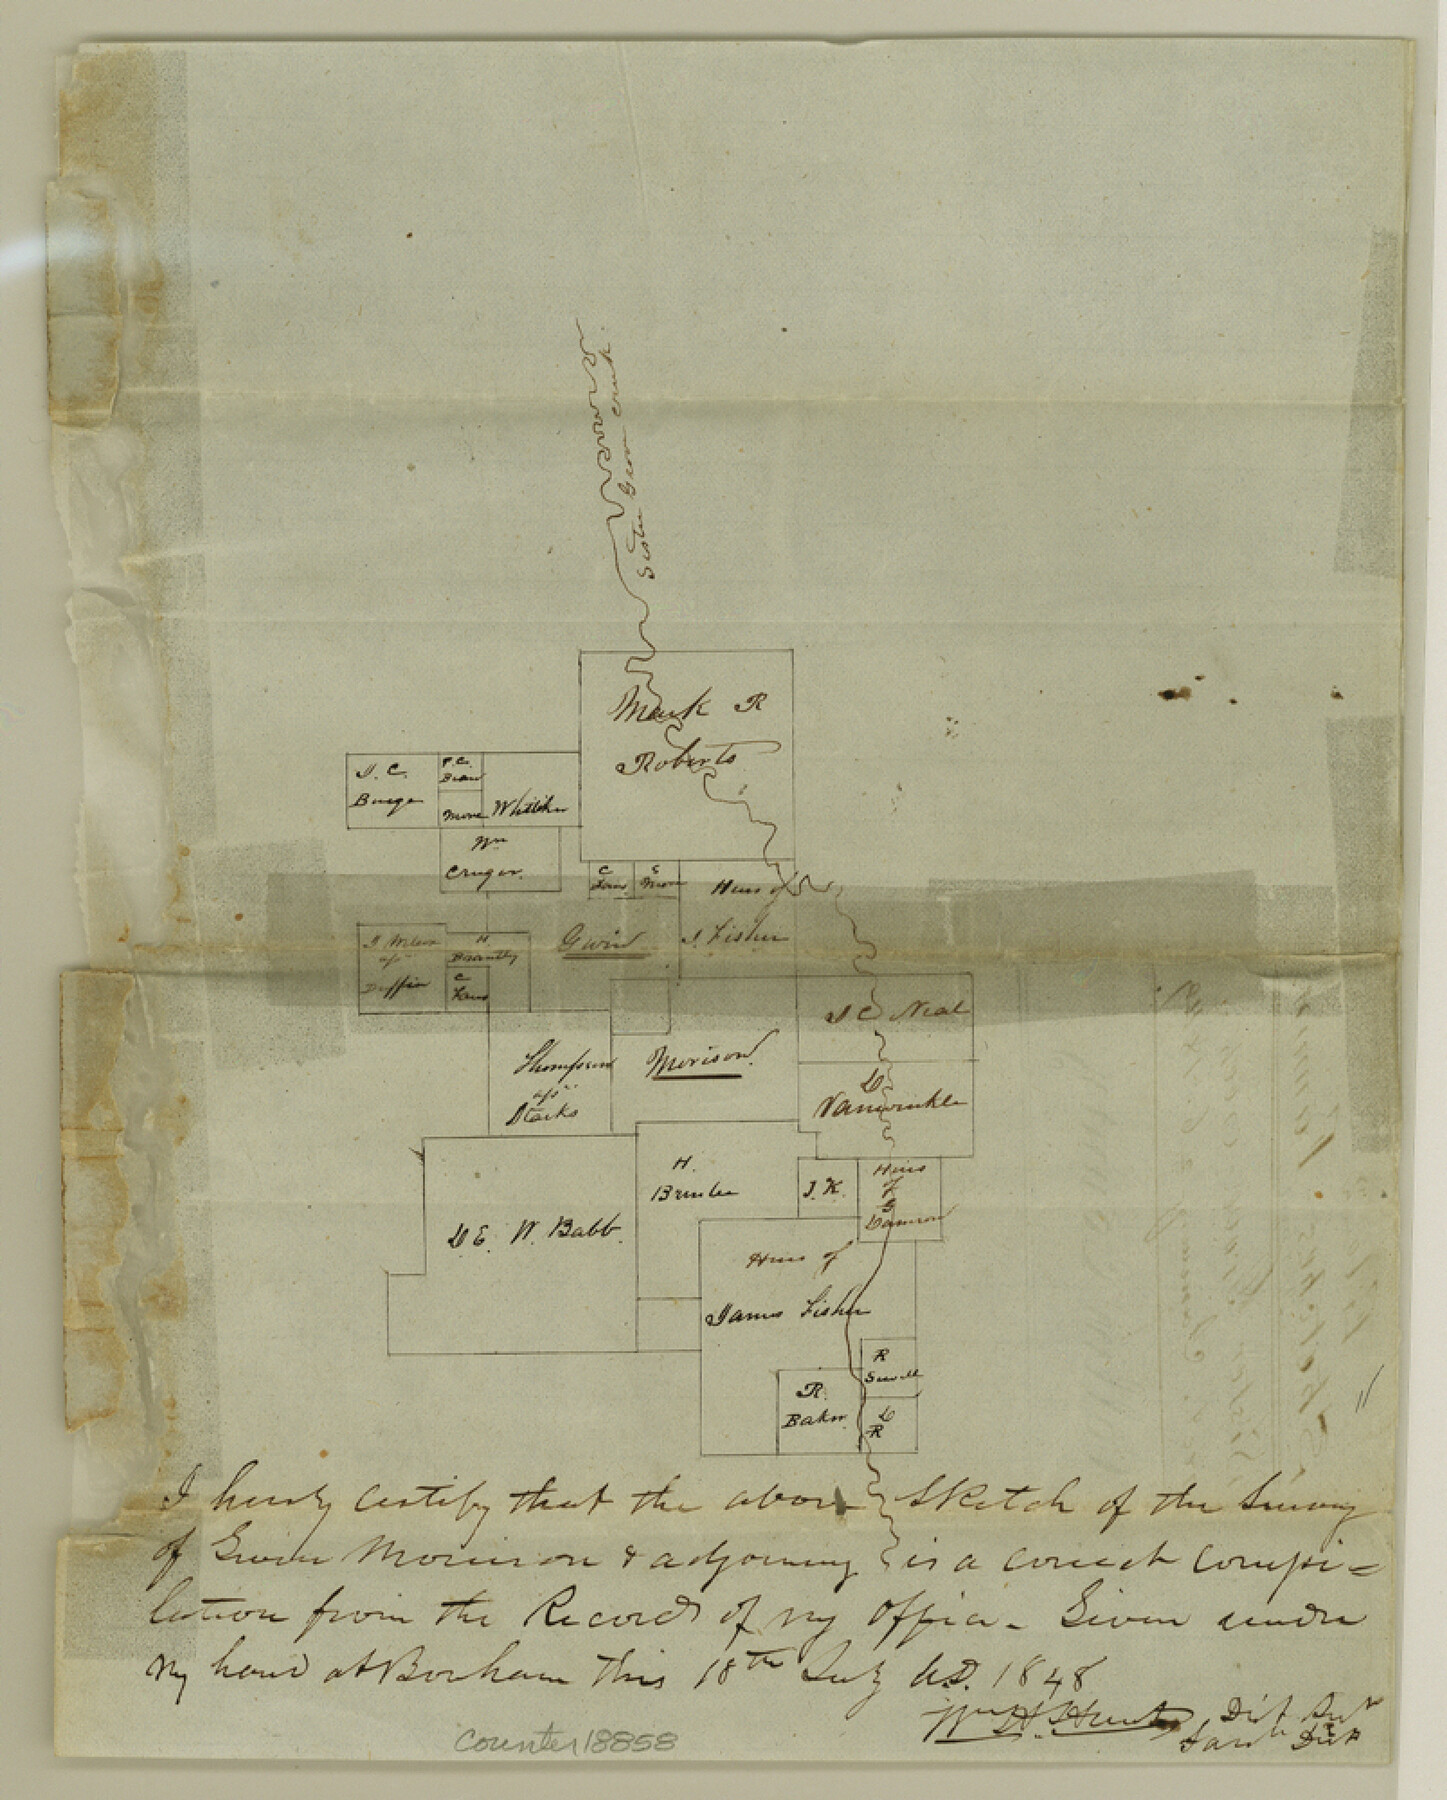 Sister Grove Creek.
Mark R
Roberts
J. C.
Burge
T. C.
Bean
Moore
Whitiker
Wm
Cruger.
C
Laws
C
Moore
Heirs of
J. Fisher
Gwin
J Wilson
asse
Duffin
H.
Brantley
C
Laws
Thompson
asse
Starks
Morison
J C Neal
D
Vanwinkle
D E. W. Babb.
H.
Brusler
J. K.
Heirs
of
G
Damron
Heirs of
James Fisher
R
Sowell
R.
Baker
D
R
I hereby certify that the above Sketch of the Survey
of Gwin Morrison & adjoining is a correct compi=
lation from the Record of my office. Given under
my hand at Bonham this 18th July A.D. 1848
Wm H. Hunt Dist Sur
Fann Dist
Counter 18858